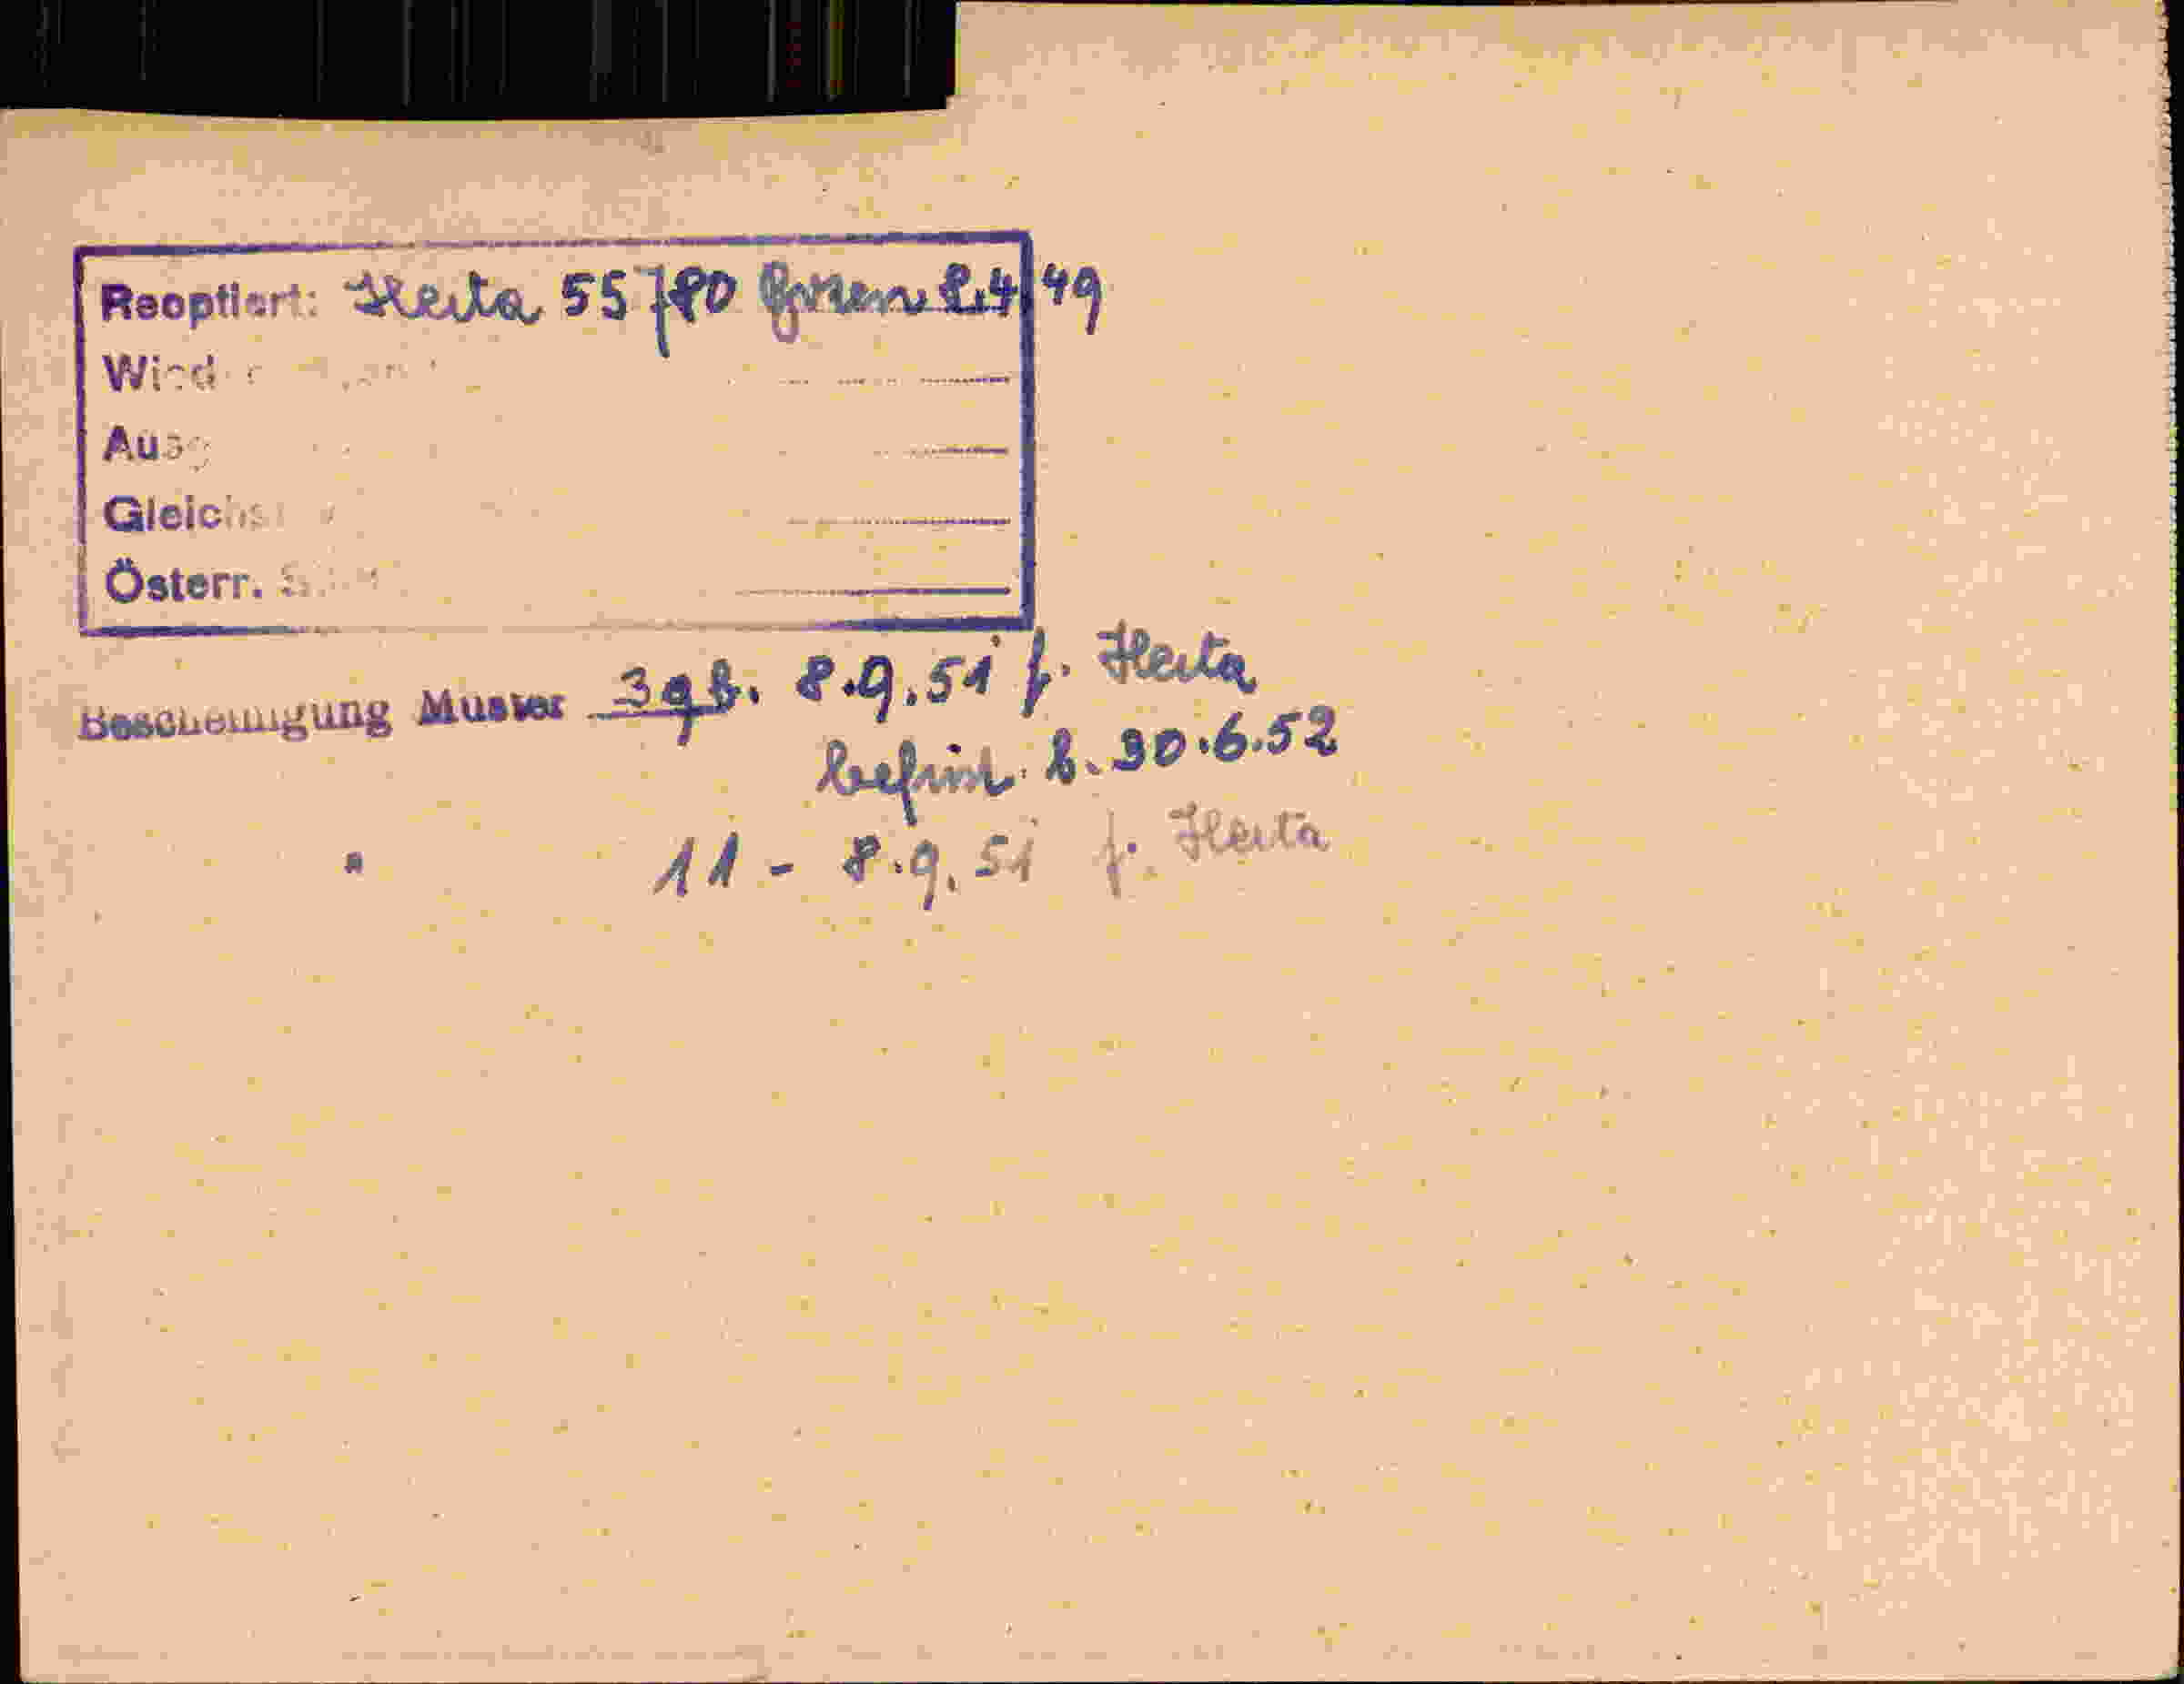 Reoptiert: Herta 55780 Bozen 2.4.49
Wieder
Ausg
Gleichst
Österr.
Bescheinigung Muster 3 gb. 8.9.51 f. Herta
befrist. b. 30.6.52
" 11 - 8.9.51 f. Herta